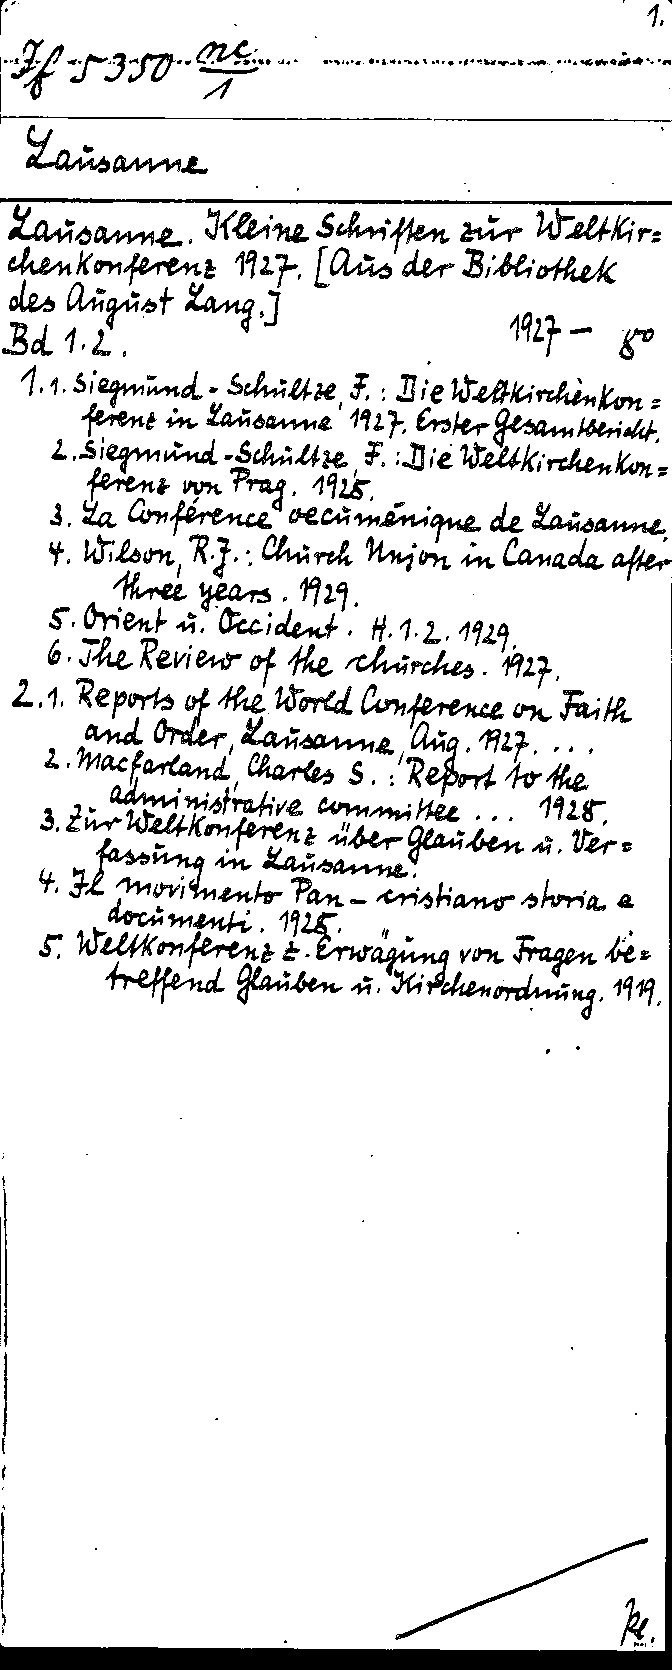 1.
If 5350 nc/1
Lausanne
Lausanne. Kleine Schriften zur Weltkir=
chenkonferenz 1927. [Aus der Bibliothek
des August Lang.]
Bd 1.2. 1927 — 8°
1.1. Siegmund-Schultze, F.: Die Weltkirchenkon=
ferenz in Lausanne 1927. Erster Gesamtbericht.
2. Siegmund-Schultze, F.: Die Weltkirchenkon=
ferenz von Prag. 1928.
3. La Conférence oecuménique de Lausanne.
4. Wilson, R.J.: Church Union in Canada after
three years. 1929.
5. Orient u. Occident. H.1.2. 1929.
6. The Review of the churches. 1927.
2.1. Reports of the World Conference on Faith
and Order, Lausanne, Aug. 1927. ...
2. Macfarland, Charles S.: Report to the
administrative committee ... 1928.
3. Zur Weltkonferenz über Glauben u. Ver=
fassung in Lausanne.
4. Il movimento Pan-cristiano storia e
documenti. 1928.
5. Weltkonferenz z. Erwägung von Fragen be=
treffend Glauben u. Kirchenordnung. 1919.
kl.